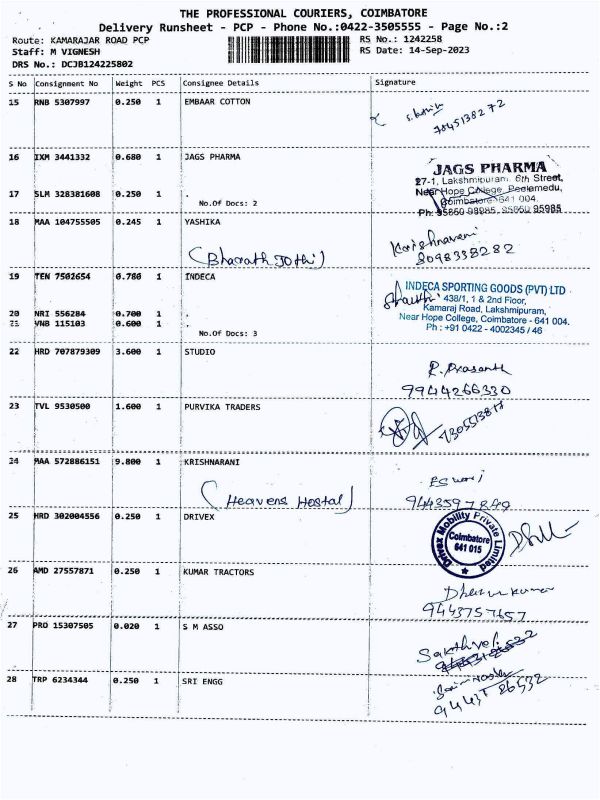 THE PROFESSIONAL COURIERS, COIMBATORE
Delivery Runsheet - PCP - Phone No.:0422-3505555 - Page No.:2
Route: KAMARAJAR ROAD PCP
RS No.: 1242258
Staff: M VIGNESH
RS Date: 14-Sep-2023
DRS No.: DCJB124225802
S No Consignment No Weight PCS Consignee Details Signature
15 RNB 5307997 0.250 1 EMBAAR COTTON
7845138272
16 IXM 3441332 0.680 1 JAGS PHARMA
JAGS PHARMA
27-1, Lakshmipuram, 6th Street,
Near Hope College, Peelamedu,
Coimbatore - 641 004.
Ph: 95850 98985, 95850 95985
17 SLM 328381608 0.250 1 .
No.Of Docs: 2
18 MAA 104755505 0.245 1 YASHIKA
(Bharath Jothi)
Karishnaveni
8098338282
19 TEN 7502654 0.780 1 INDECA
INDECA SPORTING GOODS (PVT) LTD
438/1, 1 & 2nd Floor,
Kamaraj Road, Lakshmipuram,
Near Hope College, Coimbatore - 641 004.
Ph : +91 0422 - 4002345 / 46
20 NRI 556284 0.700 1 .
21 VNB 115103 0.600 1 .
No.Of Docs: 3
22 HRD 707879309 3.600 1 STUDIO
R. Prasanth
9944266330
23 TVL 9530500 1.600 1 PURVIKA TRADERS
24 MAA 572886151 9.800 1 KRISHNARANI
(Heavens Hostal)
25 HRD 302004556 0.250 1 DRIVEX
Drivex Mobility Private Limited
Coimbatore
641 015
26 AMD 27557871 0.250 1 KUMAR TRACTORS
kumar
9443757657
27 PRO 15307505 0.020 1 S M ASSO
Sakthvel
28 TRP 6234344 0.250 1 SRI ENGG